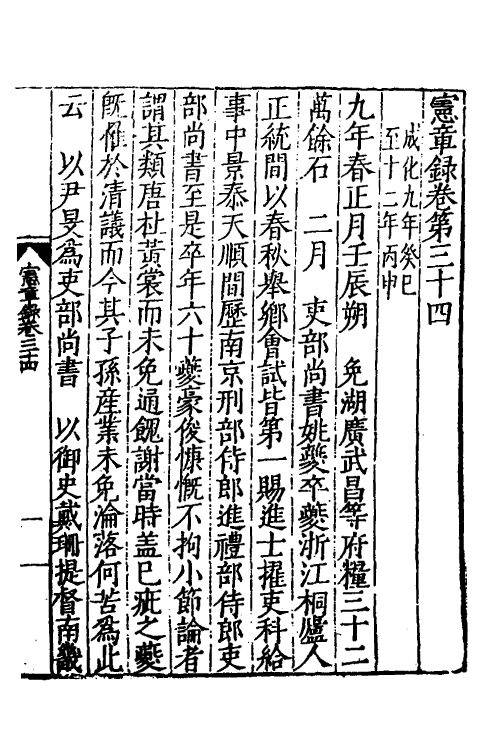 憲章録卷第三十四
成化九年癸巳
至十二年丙申
九年春正月壬辰朔　免湖廣武昌等府糧三十二
萬餘石　二月　吏部尚書姚夔卒夔浙江桐廬人
正統間以春秋舉鄉會試皆第一賜進士擢吏科給
事中景泰天順間歷南京刑部侍郎進禮部侍郎吏
部尚書至是卒年六十夔豪俊慷慨不拘小節論者
謂其類唐杜黃裳而未免通餽謝當時盖已疵之夔
既罹於清議而今其子孫産業未免淪落何苦為此
云　以尹旻為吏部尚書　以御史戴珊提督南畿
憲章録卷三十四
一